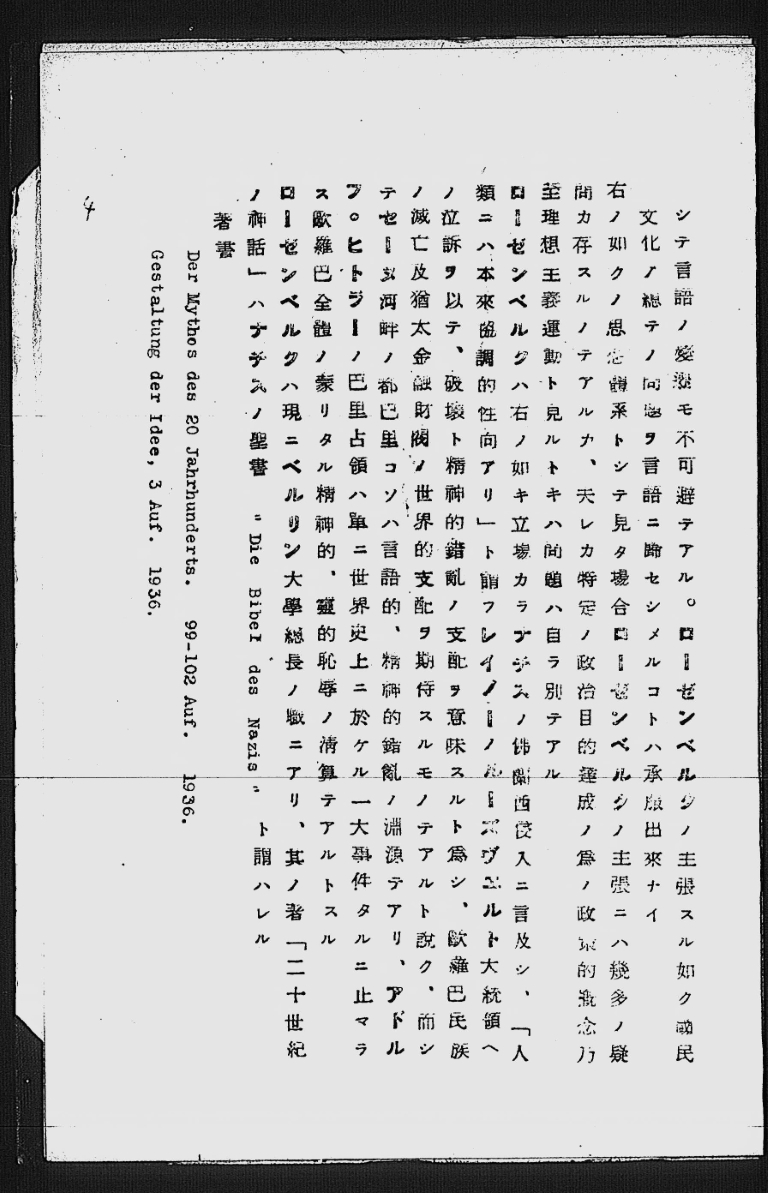 シテ言語ノ變遷モ不可避テアル。ローゼンベルクノ主張スル如ク國民
文化ノ總テノ問題ヲ言語ニ歸セシメルコトハ承服出來ナイ
右ノ如クノ思想體系トシテ見タ場合ローゼンベルクノ主張ニハ幾多ノ疑
問カ存スルノテアルカ、夫レカ特定ノ政治目的達成ノ爲ノ政策的概念乃
至理想主義運動ト見ルトキハ問題ハ自ラ別テアル
ローゼンベルクハ右ノ如キ立場カラナチスノ佛蘭西侵入ニ言及シ、「人
類ニハ本來協調的性向アリ」ト謂フレイノーノルーズヴエルト大統領ヘ
ノ泣訴ヲ以テ、破壞ト精神的錯亂ノ支配ヲ意味スルト爲シ、歐羅巴民族
ノ滅亡及猶太金融財閥ノ世界的支配ヲ期待スルモノテアルト說ク、而シ
テセーヌ河畔ノ都巴里コソハ言語的、精神的錯亂ノ淵源テアリ、アドル
フ。ヒトラーノ巴里占領ハ單ニ世界史上ニ於ケル一大事件タルニ止マラ
ス歐羅巴全體ノ蒙リタル精神的、靈的恥辱ノ清算テアルトスル
ローゼンベルクハ現ニベルリン大學總長ノ職ニアリ、其ノ著「二十世紀
ノ神話」ハナチスノ聖書 "Die Bibel des Nazis" ト謂ハレル
著書
Der Mythos des 20 Jahrhunderts. 99-102 Auf. 1936.
Gestaltung der Idee, 3 Auf. 1936.
4